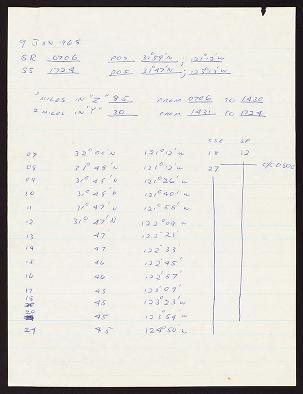 9 JAN 1968
SR 0706 POS 31°59'N ; 121°12'W
SS 1724 POS 31°47'N ;
MILES IN "Z" 85 FROM 0706 TO 1430
MILES IN "Y" 30 FROM 1431 TO 1724
CSE SP
07 32°00'N 121°12'W 18 12
08 31°48'N 121°12'W 27 C/C 0800
09 31°48'N 121°26'W
10 31°48'N 121°40'W
11 31°47'N 121°55'W
12 31°47'N 122°09'W
13 47 122°21'
14 47 122°33
15 46 122°45'
16 46 122°57'
17 45 123°09'
18 45 123°23'W
20 45 123°54'W
24 45 124°50'W